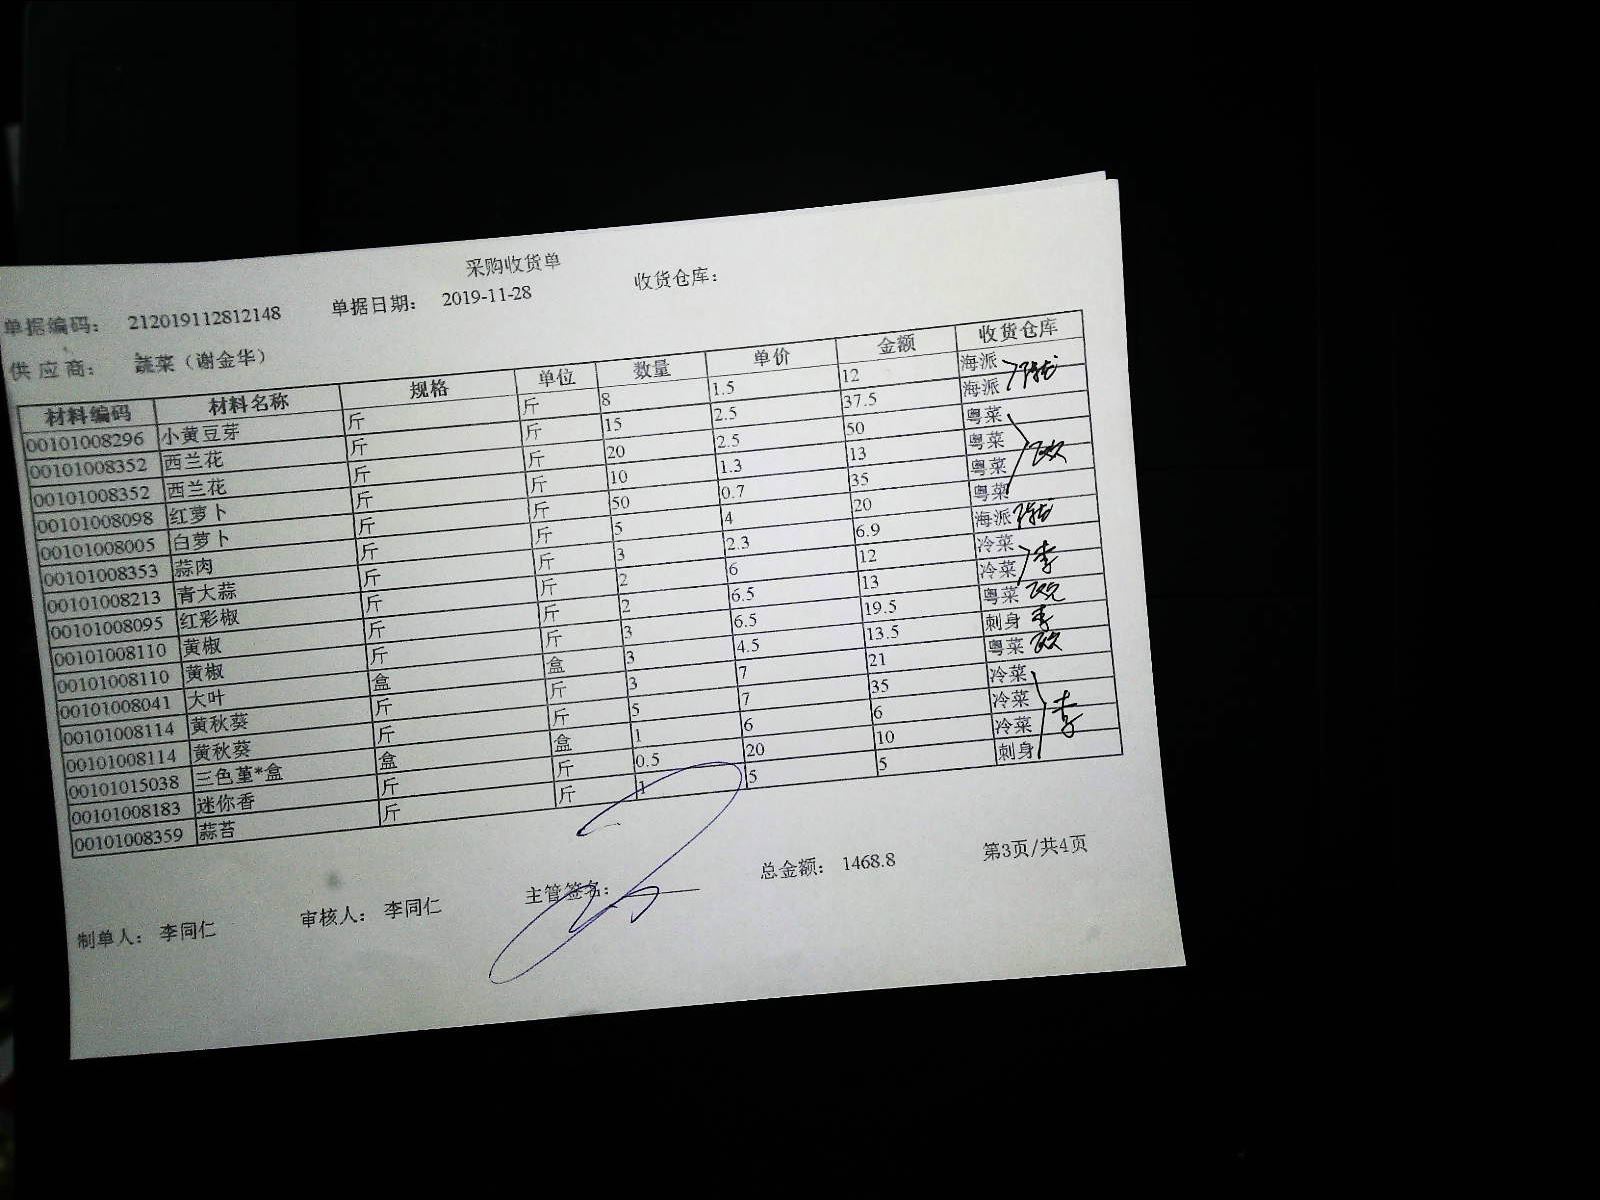 采购收货单
单据编码： 212019112812148 单据日期： 2019-11-28 收货仓库：
供应商： 蔬菜（谢金华）
材料编码 材料名称 规格 单位 数量 单价 金额 收货仓库
00101008296 小黄豆芽 斤 斤 8 1.5 12 海派
00101008352 西兰花 斤 斤 15 2.5 37.5 海派
00101008352 西兰花 斤 斤 20 2.5 50 粤菜
00101008098 红萝卜 斤 斤 10 1.3 13 粤菜
00101008005 白萝卜 斤 斤 50 0.7 35 粤菜
00101008353 蒜肉 斤 斤 5 4 20 粤菜
00101008213 青大蒜 斤 斤 3 2.3 6.9 海派
00101008095 红彩椒 斤 斤 2 6 12 冷菜
00101008110 黄椒 斤 斤 2 6.5 13 冷菜 李
00101008110 黄椒 斤 斤 3 6.5 19.5 粤菜
00101008041 大叶 盒 盒 3 4.5 13.5 刺身 李
00101008114 黄秋葵 斤 斤 3 7 21 粤菜
00101008114 黄秋葵 斤 斤 5 7 35 冷菜
00101015038 三色堇*盒 盒 盒 1 6 6 冷菜 李
00101008183 迷你香 斤 斤 0.5 20 10 冷菜
00101008359 蒜苔 斤 斤 1 5 5 刺身
制单人： 李同仁 审核人： 李同仁 主管签名： 总金额： 1468.8 第3页/共4页